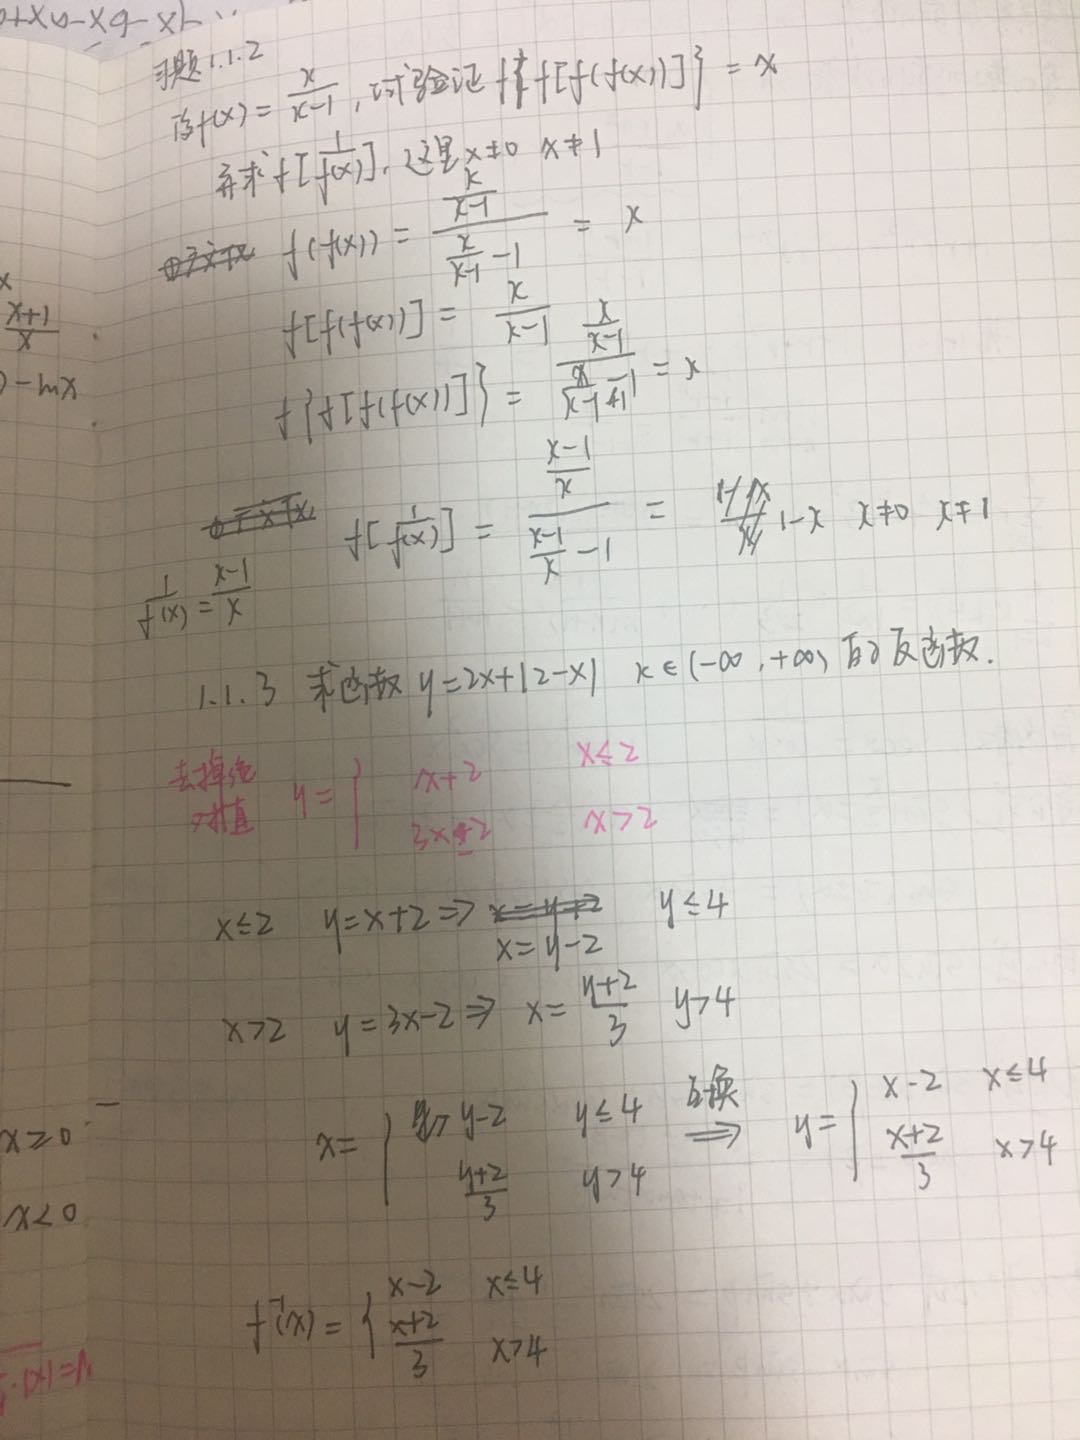 习题1.1.2
设f(x) = x/(x-1), 试验证 f{f[f(f(x))]} = x
并求f[1/f(x)], 这里x≠0 x≠1
f(f(x)) = (x/(x-1))/(x/(x-1) -1) = x
f[f(f(x))] = x/(x-1)
f{f[f(f(x))]} = (x/(x-1))/(x/(x-1) -1) = x
f[1/f(x)] = ((x-1)/x)/((x-1)/x -1) = 1-x x≠0 x≠1
1/f(x) = (x-1)/x
1.1.3 求函数 y=2x+|2-x| x∈(-∞,+∞)的反函数.
去掉绝对值 y= { x+2 x≤2
3x-2 x>2
x≤2 y=x+2 ⇒ x=y-2 y≤4
x>2 y=3x-2 ⇒ x= (y+2)/3 y>4
x= { y-2 y≤4 互换 ⇒ y= { x-2 x≤4
(y+2)/3 y>4 (x+2)/3 x>4
f⁻¹(x) = { x-2 x≤4
(x+2)/3 x>4
(x+1)/x
x≥0
x<0